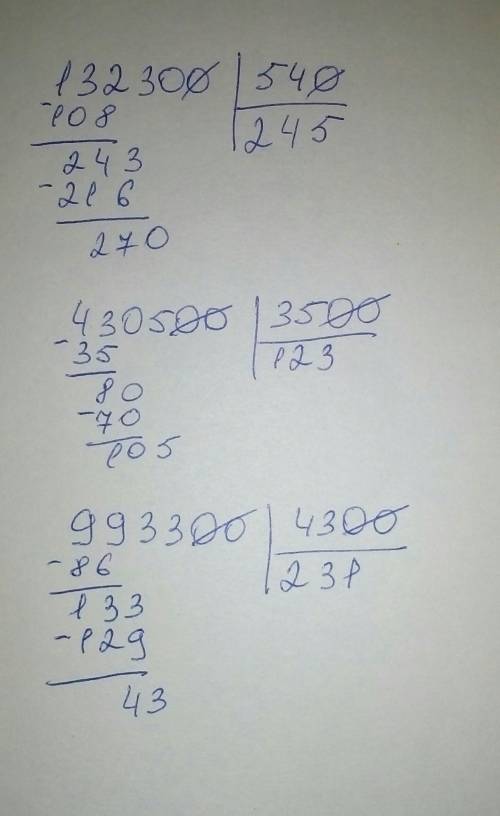 132300 540
-108 245
243
-216
270
430500 3500
-35 123
80
-70
105
993300 4300
-86 231
133
-129
43